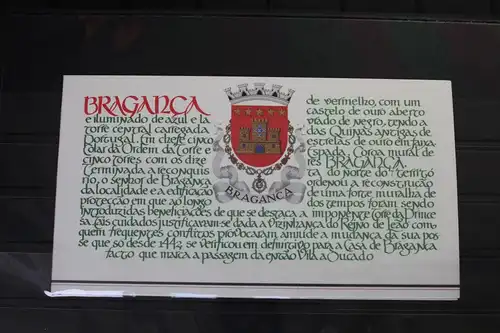 BRAGANÇA de vermelho, com um
e iluminado de azul e la castelo de ouro aberto
torre central carregada prado de negro, tendo a
das Quinas antigas de
Portugal. Em chefe cinco estrelas de ouro em faixa
Colar da Ordem da Torre e Espada. Coroa mural de
cinco torres, com os dize res BRAGANÇA
Terminada a reconquis ta do norte do territó
rio, o senhor de Bragança ordenou a reconstrução
da localidade e a edificação de uma forte muralha de
protecção em que ao longo dos tempos foram sendo
BRAGANÇA
introduzidas beneficiações de que se destaca a imponente torre da Prince
sa. Tais cuidados justificaram-se dada a vizinhança do Reino de Leão com
quem frequentes conflitos provocaram amiúde a mudança da sua pos
se que só desde 1442 se verificou em definitivo para a Casa de Bragança
facto que marca a passagem da então Vila a Ducado